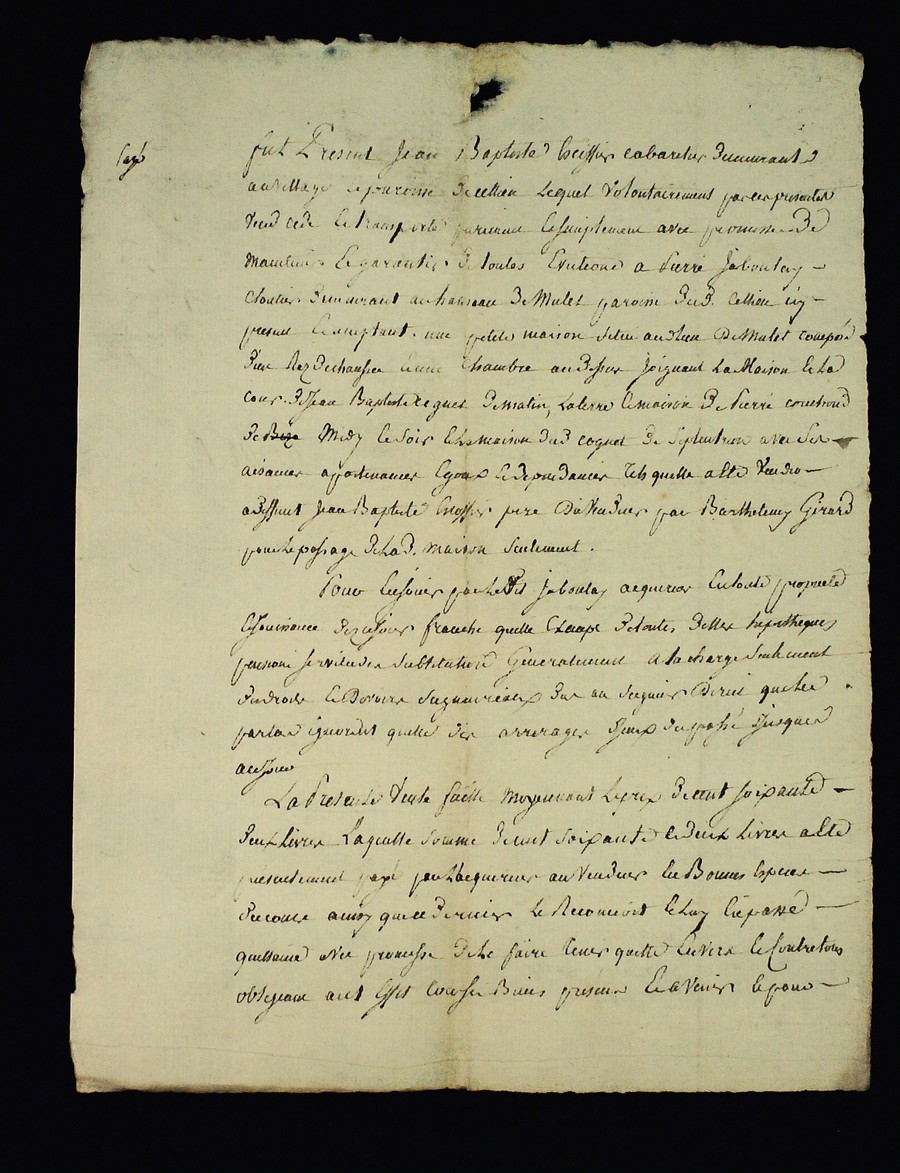 fut Present Jean Baptiste cabaretier demeurant
au village et paroisse de cellieu Lequel volontairement par ces presentes
vend cede et transporte purement et simplement avec promesse de
maintenir et garantir de toutes evictions a Pierre Jaboulay
cloutier demeurant au hameau de Mulet paroisse dud. Cellieu icy
present acceptant. une petite maison située aud. lieu De Mulet composé
d'un Rez de chaussée et une chambre au dessus joignant La Maison et la
cour de Jean Baptiste Coignet de matin, La terre et maison de Pierre
de Bize Midy et soir et la maison dud coignet de septentrion avec ses
aisances appartenances et dependances telle quelle a eté vendu
Jean Baptiste pere du vendeur par Barthelemy Girard
pour le passage de lad. maison seulement.
Pour par led Jaboulay acquereur en toute proprieté
et jouissance franche quitte et exempte de toutes dettes hipotheques
pensions servitudes substitutions Generalement a la charge seulement
des droits et devoirs seigneuriaux dus au seigneur direct que les
parties ignorent quitte des arrerages d'iceux du passé jusques a
ce jour
La Presente Vente faitte moyennant Le prix de cent soixante
deux Livres Laquelle somme de cent soixante et deux Livres a eté
presentement payé par l'acquereur au vendeur en Bonnes especes
de cours ainsy que ce dernier Le Reconnoit et luy en passe
quittance avec promesse de le faire tenir quitte envers et contre tous
obligeant a cet effet tous ses Biens presents et avenir et pour